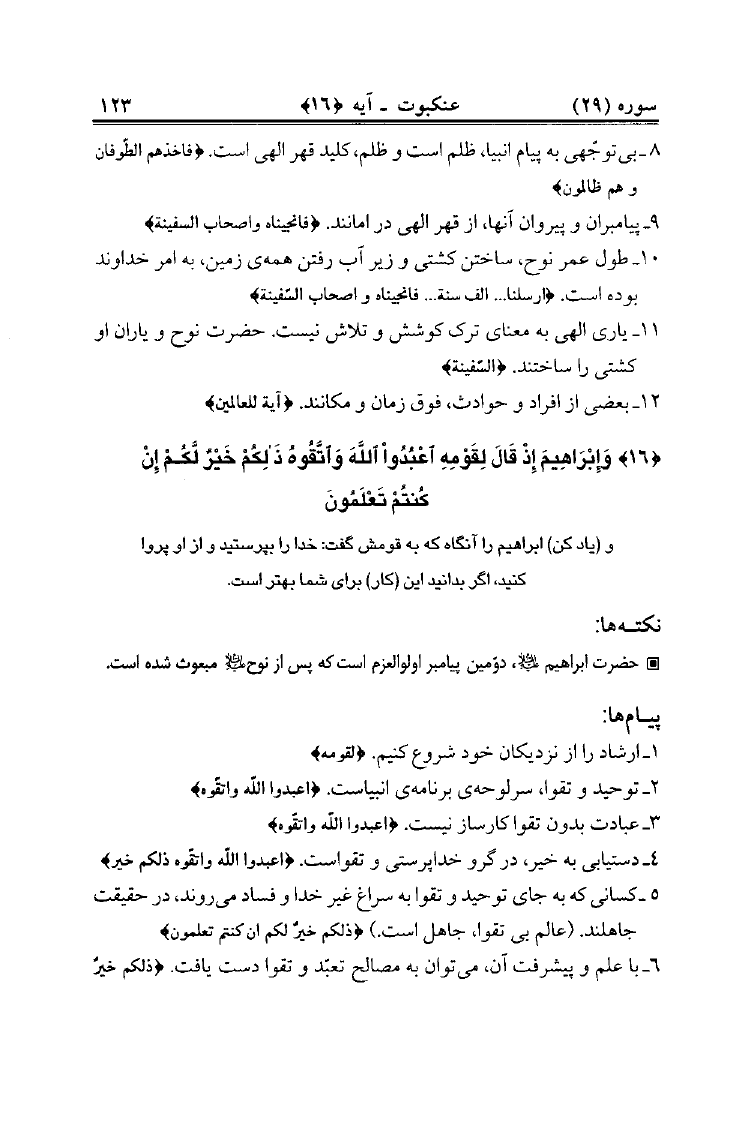 سوره (٢٩) عنکبوت ـ آیه ﴿١٦﴾ ١٢٣
٨ـ بی‌توجّهی به پیام انبیا، ظلم است و ظلم، کلید قهر الهی است. ﴿فاخذهم الطّوفان
و هم ظالمون﴾
٩ـ پیامبران و پیروان آنها، از قهر الهی در امانند. ﴿فانجیناه واصحاب السفینة﴾
١٠ـ طول عمر نوح، ساختن کشتی و زیر آب رفتن همه‌ی زمین، به امر خداوند
بوده است. ﴿ارسلنا... الف سنة... فانجیناه و اصحاب السّفینة﴾
١١ـ یاری الهی به معنای ترک کوشش و تلاش نیست. حضرت نوح و یاران او
کشتی را ساختند. ﴿السّفینة﴾
١٢ـ بعضی از افراد و حوادث، فوق زمان و مکانند. ﴿آیة للعالمین﴾
﴿١٦﴾ وَإِبْرَاهِیمَ إِذْ قَالَ لِقَوْمِهِ ٱعْبُدُواْ ٱللَّهَ وَٱتَّقُوهُ ذَ ٰلِکُمْ خَیْرٌ لَّکُمْ إِن
کُنتُمْ تَعْلَمُونَ
و (یاد کن) ابراهیم را آنگاه که به قومش گفت: خدا را بپرستید و از او پروا
کنید، اگر بدانید این (کار) برای شما بهتر است.
نکته‌ها:
▣ حضرت ابراهیم علیه‌السلام، دوّمین پیامبر اولوالعزم است که پس از نوح علیه‌السلام مبعوث شده است.
پیام‌ها:
١ـ ارشاد را از نزدیکان خود شروع کنیم. ﴿لقومه﴾
٢ـ توحید و تقوا، سرلوحه‌ی برنامه‌ی انبیاست. ﴿اعبدوا اللّه واتقّوه﴾
٣ـ عبادت بدون تقوا کارساز نیست. ﴿اعبدوا اللّه واتقّوه﴾
٤ـ دستیابی به خیر، در گرو خداپرستی و تقواست. ﴿اعبدوا اللّه واتقّوه ذلکم خیر﴾
٥ ـ کسانی که به جای توحید و تقوا به سراغ غیر خدا و فساد می‌روند، در حقیقت
جاهلند. (عالم بی تقوا، جاهل است.) ﴿ذلکم خیرٌ لکم ان کنتم تعلمون﴾
٦ـ با علم و پیشرفت آن، می‌توان به مصالح تعبّد و تقوا دست یافت. ﴿ذلکم خیرٌ